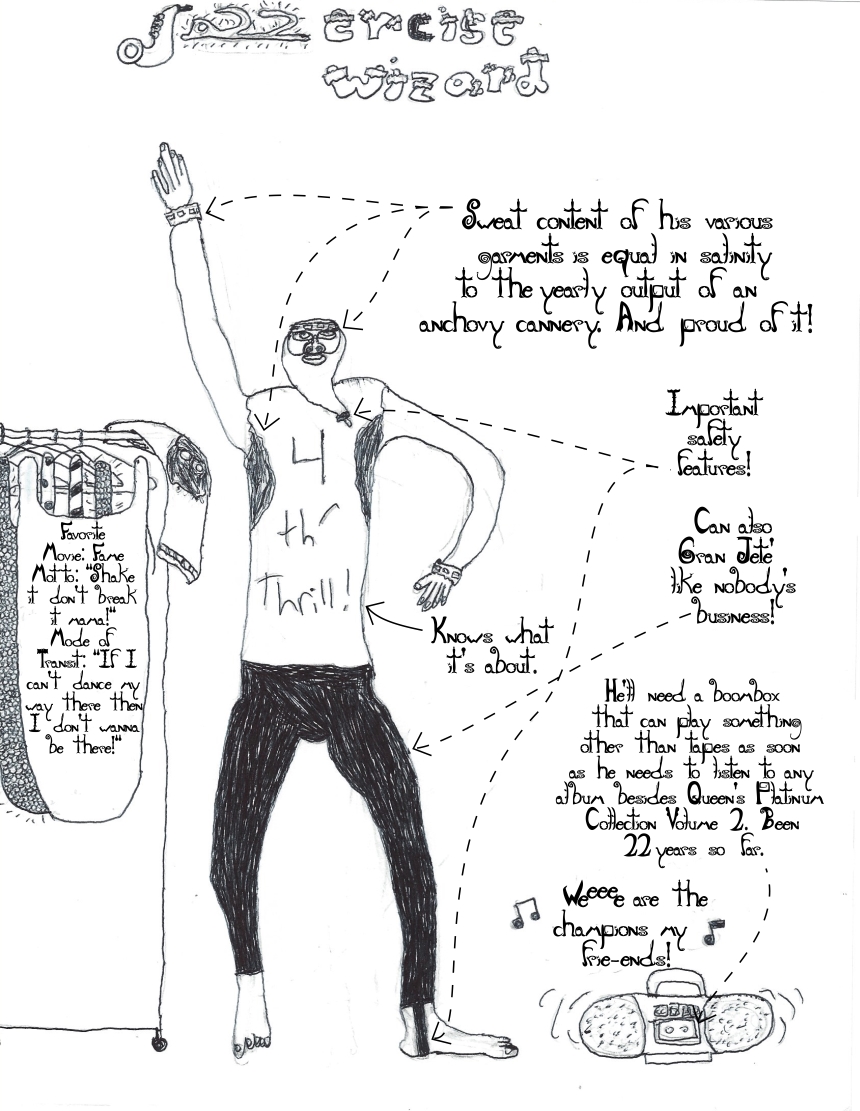 Jazz ercise
wizard
Sweat content of his various
garments is equal in salinity
to the yearly output of an
anchovy cannery. And proud of it!
Important
safety
features!
4
th'
Thrill!
Can also
Gran Jeté'
like nobody's
business!
Knows what
it's about.
Favorite
Movie: Fame
Motto: "Shake
it don't break
it mama!"
Mode of
Transit: "If I
can't dance my
way there then
I don't wanna
be there!"
He'll need a boombox
that can play something
other than tapes as soon
as he needs to listen to any
album besides Queen's Platinum
Collection Volume 2. Been
22 years so far.
Weeee are the
champions my
frie-ends!